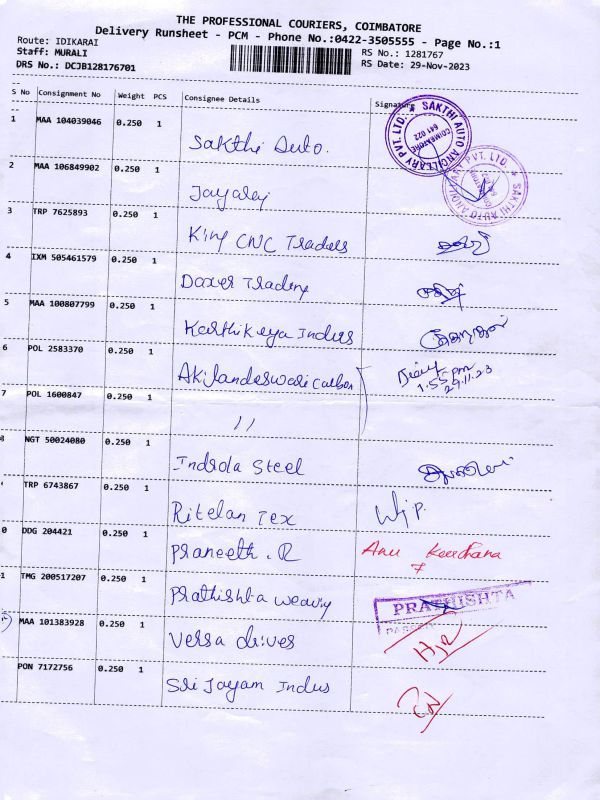 THE PROFESSIONAL COURIERS, COIMBATORE
Delivery Runsheet - PCM - Phone No.:0422-3505555 - Page No.:1
Route: IDIKARAI
RS No.: 1281767
Staff: MURALI
RS Date: 29-Nov-2023
DRS No.: DCJB128176701
S No Consignment No Weight PCS Consignee Details Signature
1 MAA 104039046 0.250 1 Sakthi Auto.
SAKTHI AUTO ANCILLARY PVT. LTD. ★
COIMBATORE
641 022
2 MAA 106849902 0.250 1
SAKTHI AUTO ANCILLARY PVT. LTD. ★
3 TRP 7625893 0.250 1 King CNC Traders
4 IXM 505461579 0.250 1 Trading
5 MAA 100807799 0.250 1 Karthikeya Indus
6 POL 2583370 0.250 1 Akilandeswari Carbon
1.55 pm
29.11.23
7 POL 1600847 0.250 1 11
8 NGT 50024080 0.250 1 Indrola Steel
TRP 6743867 0.250 1 Ritelan Tex
0 DDG 204421 0.250 1 Praneeth . R Anu
1 TMG 200517207 0.250 1 Prathishta weaving
PRATHISHTA
MAA 101383928 0.250 1 Versa drives
PON 7172756 0.250 1 Sri Jayam Indus